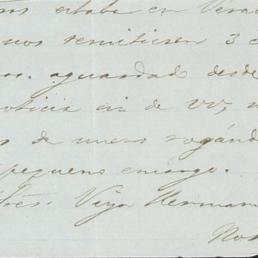 estaba en Vera
nos remitiesen 3 c
os. aguardad desde
oticia en de VV, 
s de nuevo rogánd
pequeno encargo.
Vega Herman